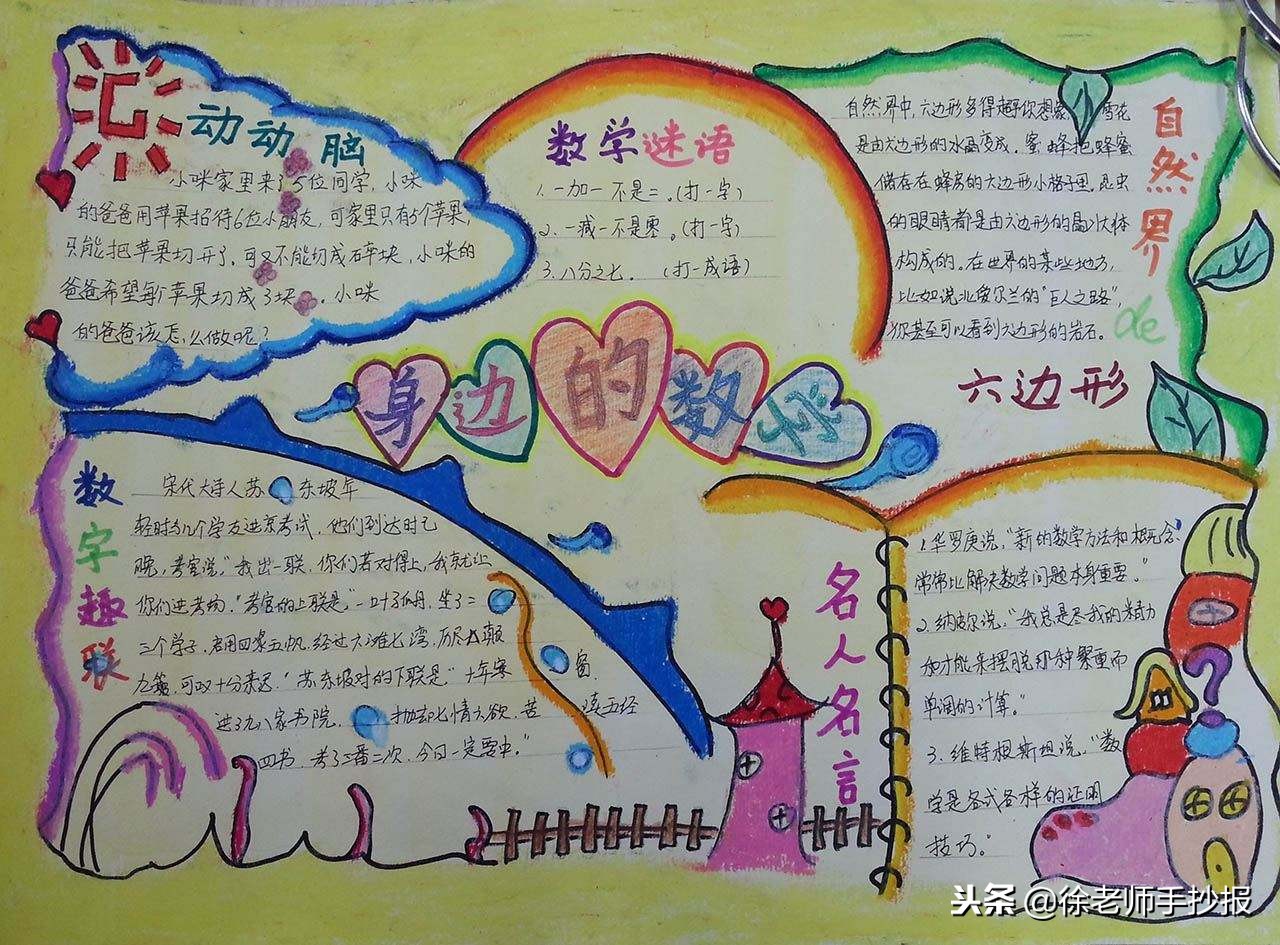 动动脑
小咪家里来了5位同学，小咪
的爸爸用苹果招待6位小朋友，可家里只有5个苹果
只能把苹果切开了，可又不能切成碎块，小咪的
爸爸希望每个苹果切成3块。小咪
的爸爸该怎么做呢？
数学谜语
1.一加一不是二。(打一字)
2、一减一不是零。(打一字)
3.八分之七。（打一成语）
自然界de
六边形
自然界中，六边形多得超乎你想象 雪花
是由六边形的水晶变成，蜜蜂把蜂蜜
储存在蜂房的六边形小格子里，昆虫
的眼睛都是由六边形的晶状体
构成的。在世界的某些地方，
比如说北爱尔兰的"巨人之路"，
你甚至可以看到六边形的岩石。
身边的数学
数字趣联
宋代大诗人苏东坡年
轻时与几个学友进京考试，他们到达时已
晚，考官说，"我出一联，你们若对得上，我就让
你们进考场。"考官的上联是"一叶孤舟，坐了二
三个学子，启用四桨五帆，经过六滩七湾，历尽八颠
九簸，可叹十分来迟。"苏东坡对的下联是"十年寒窗，
进了九八家书院，抛却七情六欲，苦读五经
四书，考了三番二次，今日一定要中。"
名人名言
1.华罗庚说，"新的数学方法和概念，
常常比解决数学问题本身重要。"
2.纳皮尔说，"我总是尽我的精力
和才能来摆脱那种繁重而
单调的计算。"
3.维特根斯坦说，"数
学是各式各样的证明
技巧。"
头条@徐老师手抄报